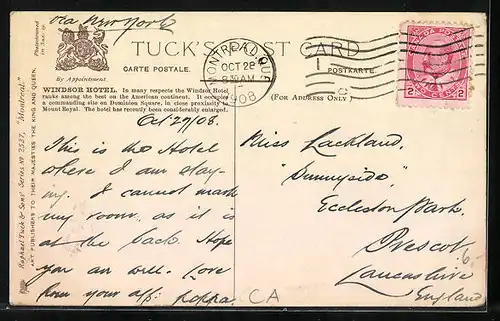 via New York
TUCK'S POST CARD
CARTE POSTALE.
POSTKARTE.
By Appointment.
(FOR ADDRESS ONLY)
MONTREAL QUE
OCT 28
8 30 AM
1908
2 2
WINDSOR HOTEL. In many respects the Windsor Hotel
ranks among the best on the American continent. It occupies
a commanding site on Dominion Square, in close proximity to
Mount Royal. The hotel has recently been considerably enlarged.
Oct 29/08.
This is the Hotel
where I am stay-
ing. I cannot mark
my room, as it is
at the back. Hope
you are well. Love
from your aff:
CA
Miss Lackland,
"Sunnyside,"
Eccleston Park,
Prescot,
Lancashire
England
Raphael Tuck & Sons' Series No 2537, "Montreal."
ART PUBLISHERS TO THEIR MAJESTIES THE KING AND QUEEN.